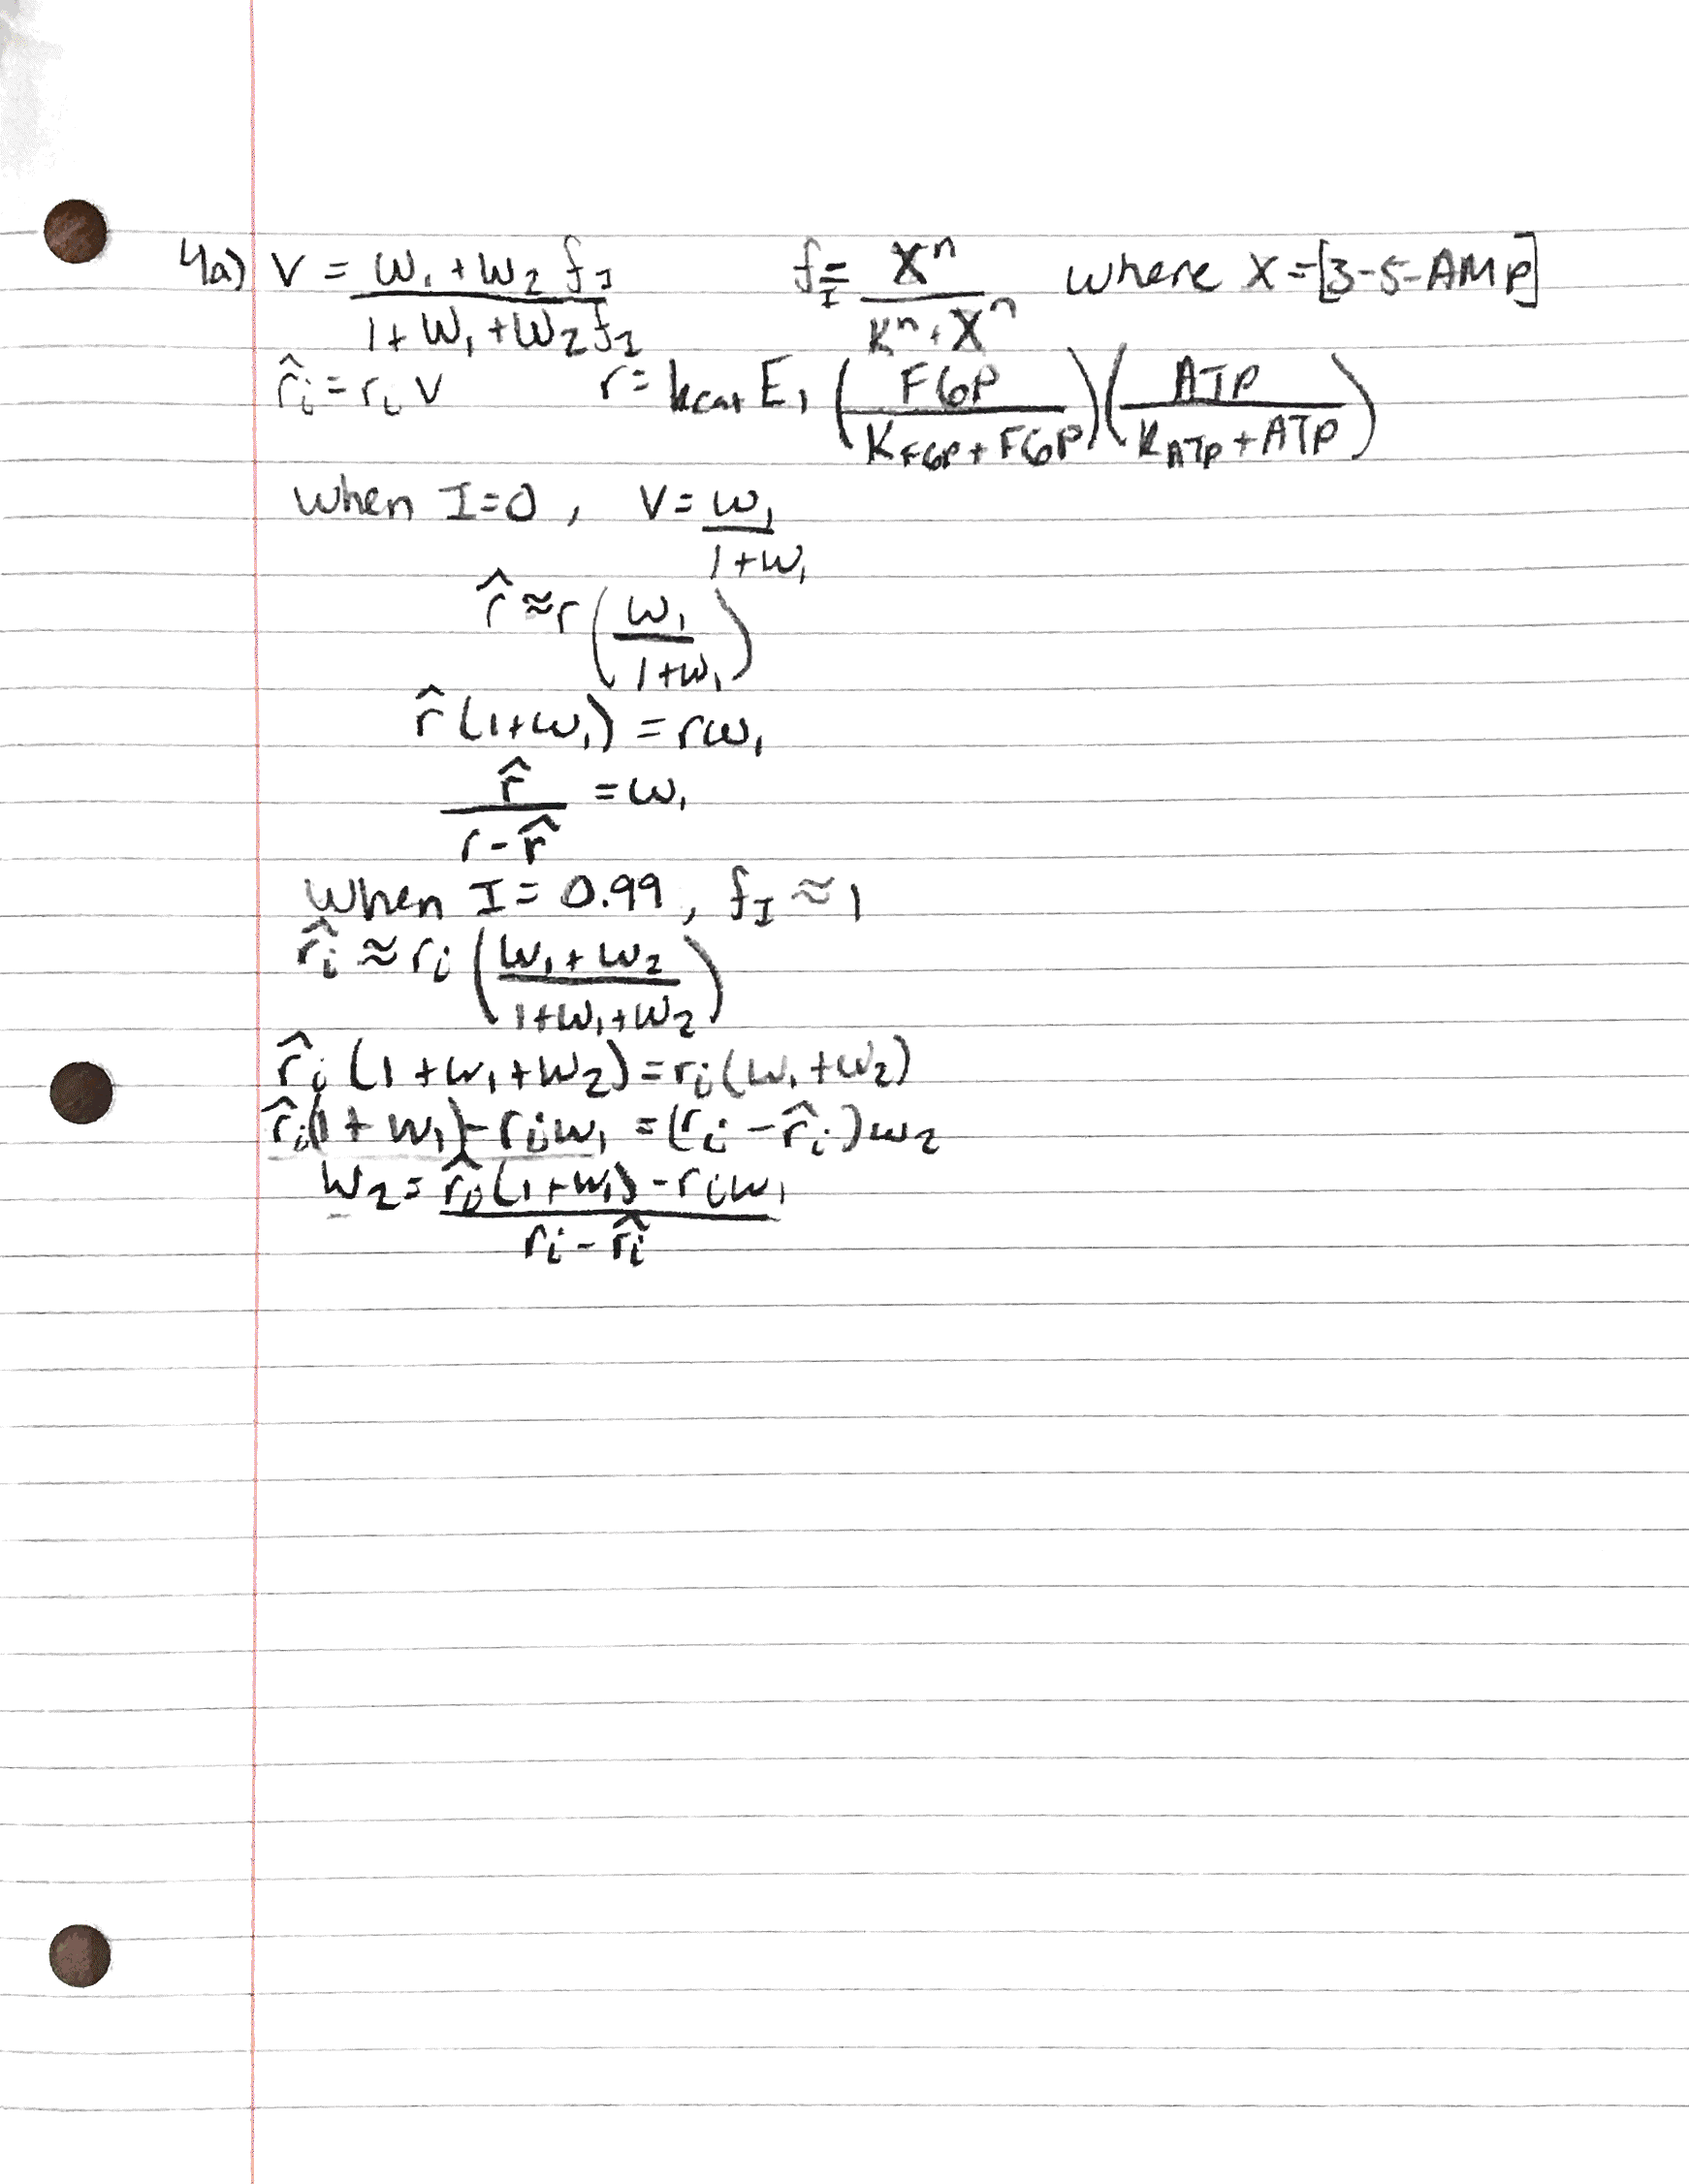 4a) V = (W₁ + W₂ f_I) / (1 + W₁ + W₂ f_I)    f_I = Xⁿ / (Kⁿ + Xⁿ)    where X = [3-5-AMP]
r̂ᵢ = rᵢ V    r = kcat E₁ (F6P / (K_F6P + F6P)) (ATP / (K_ATP + ATP))
when I = 0 , V = W₁ / (1 + W₁)
r̂ ≈ r (W₁ / (1 + W₁))
r̂ (1 + W₁) = r W₁
r̂ / (r - r̂) = W₁
When I = 0.99 , f_I ≈ 1
r̂ᵢ ≈ rᵢ ((W₁ + W₂) / (1 + W₁ + W₂))
r̂ᵢ (1 + W₁ + W₂) = rᵢ (W₁ + W₂)
r̂ᵢ (1 + W₁) - rᵢ W₁ = (rᵢ - r̂ᵢ) W₂
W₂ = (r̂ᵢ (1 + W₁) - rᵢ W₁) / (rᵢ - r̂ᵢ)